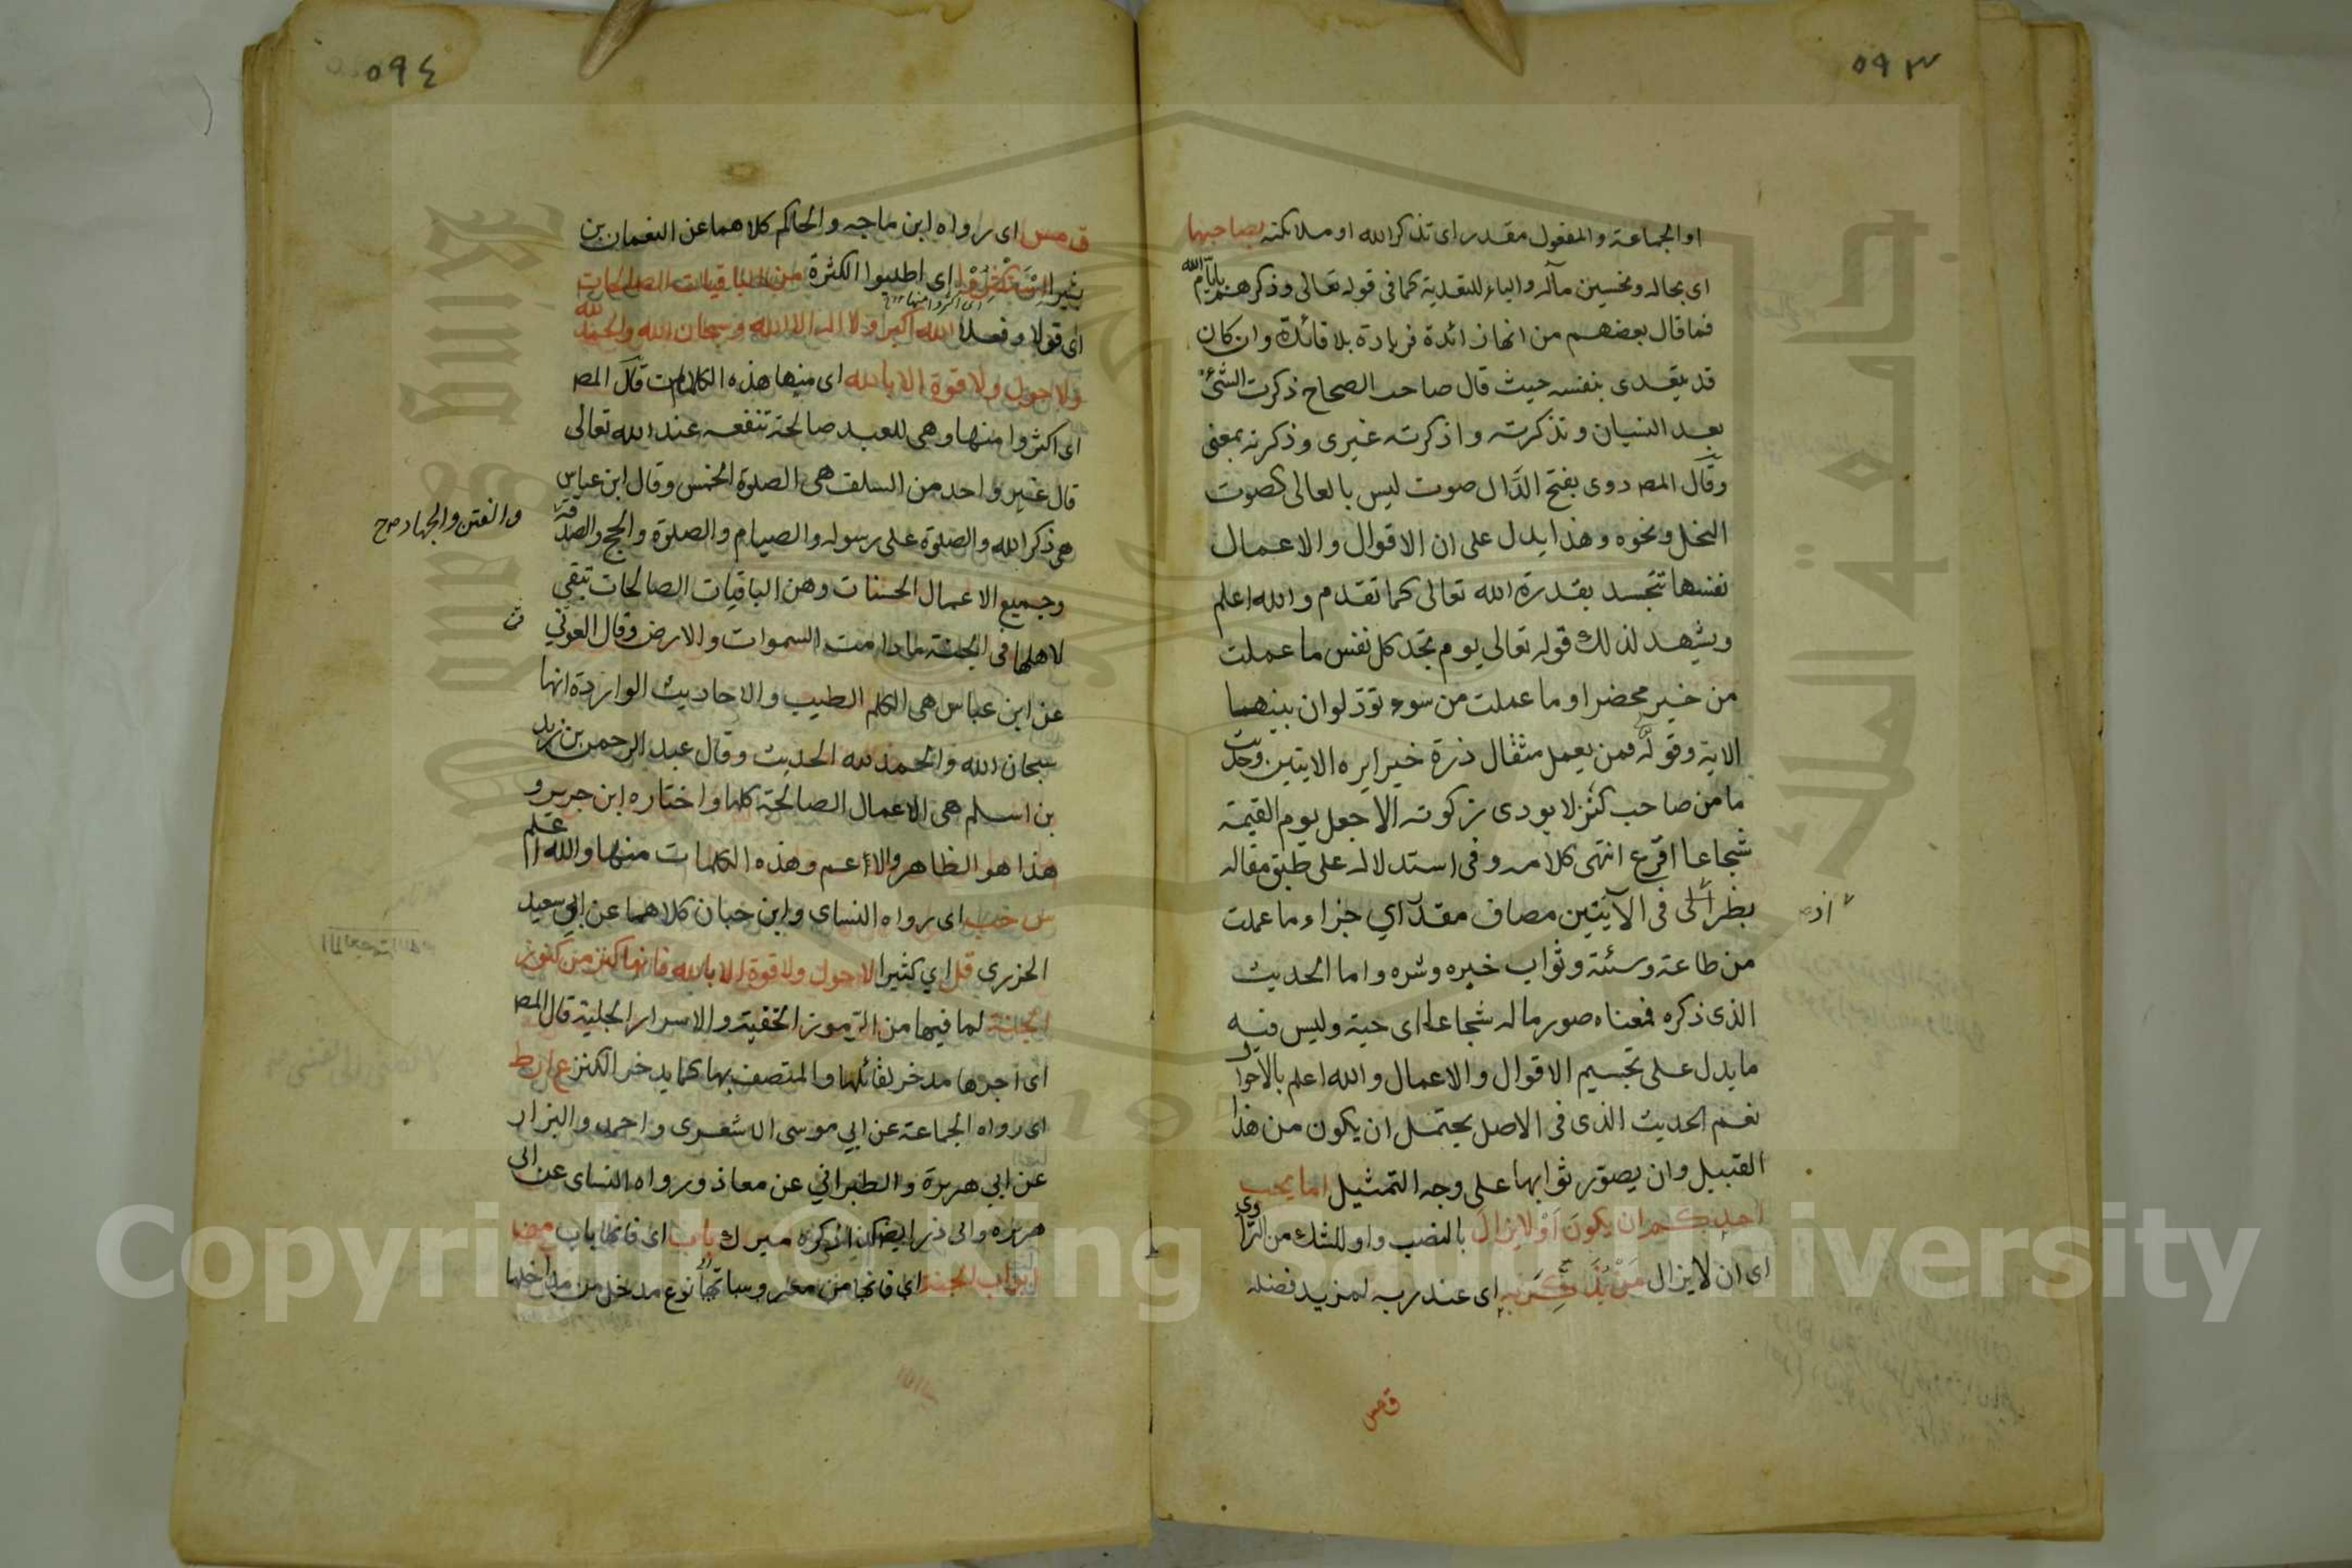 ٥٩٣
او الجماعة والمفعول مقدر اى تذكر الله او ملائكته بصاحبها
اى بحاله وتحسين مآله والباء للتعدية كما فى قوله تعالى وذكرهم بايام الله
فما قال بعضهم من انها زائدة فزيادة بلا فائدة وان كان
قد يتعدى بنفسه حيث قال صاحب الصحاح ذكرت الشئ
بعد النسيان وتذكرته واذكرته غيرى وذكرته بمعنى
وقال المص دوى بفتح الدال صوت ليس بالعالى كصوت
النحل ونحوه وهذا يدل على ان الاقوال والاعمال
نفسها تتجسد بقدرة الله تعالى كما تقدم والله اعلم
ويشهد لذلك قوله تعالى يوم تجد كل نفس ما عملت
من خير محضرا وما عملت من سوء تود لو ان بينهما
الاية وقوله فمن يعمل مثقال ذرة خيرا يره الايتين وحديث
ما من صاحب كنز لا يودى زكوته الا جعل يوم القيمة
شجاعا اقرع انتهى كلامه وفى استدلاله على طبق مقاله
نظر اذ فى الآيتين مضاف مقدر اي جزاء ما عملت
من طاعة وسئة وثواب خيره وشره واما الحديث
الذى ذكره فمعناه صور ماله شجاعا اى حية وليس فيه
ما يدل على تجسيم الاقوال والاعمال والله اعلم بالاحوال
نعم الحديث الذى فى الاصل يحتمل ان يكون من هذا
القبيل وان يصور ثوابها على وجه التمثيل اما يحب
احدكم ان يكون أوْ لا يزالَ بالنصب واو للشك من الراوي
اى ان لا يزال مَنْ يُذَكِّرُ بِهِ اى عند ربه لمزيد فضله
ق مس
٥٩٤
ق مس اى رواه ابن ماجه والحاكم كلاهما عن النعمان بن
بشير استكثروا اى اطلبوا الكثرة من الباقيات الصالحات
اى اكثروا منها
اى قولا وفعلا الله اكبر ولا اله الا الله وسبحان الله والحمد لله
ولا حول ولا قوة الا بالله اى منها هذه الكلمات قال المص
اى اكثروا منها وهى للعبد صالحة تنفعه عند الله تعالى
قال غير واحد من السلف هى الصلوة الخمس وقال ابن عباس
هى ذكر الله والصلوة على رسوله والصيام والصلوة والحج والصدقة
والعتق والجهاد صح
وجميع الاعمال الحسنات وهن الباقيات الصالحات تبقى
لاهلها فى الجنة ما دامت السموات والارض وقال العوفي
عن ابن عباس هى الكلم الطيب والاحاديث الواردة انها
سبحان الله والحمد لله الحديث وقال عبد الرحمن بن زيد
بن اسلم هى الاعمال الصالحة كلها واختاره ابن جرير و
هذا هو الظاهر والاعم وهذه الكلمات منها والله اعلم
س حب اى رواه النساى وابن حبان كلاهما عن ابي سعيد
الخزرى قل اي كثيرا لا حول ولا قوة الا بالله فانها كنز من كنوز
الجنة لما فيها من الرموز الخفية والاسرار الجلية قال المص
اى اجرها مدخر لقائلها والمتصف بها كما يدخر الكنز ع ا ر ط
اى رواه الجماعة عن ابي موسى الاشعرى واحمد والبزار
عن ابي هريرة والطبراني عن معاذ ورواه النساى عن ابى
هريره وابى ذر ايضا كذا ذكره ميرك باب اى فانها باب من
ابواب الجنة اي فانها من معروساتها نوع مدخل من مداخلها